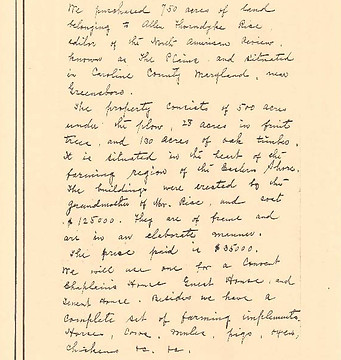 We purchased 750 acres of land
belonging to Allen Thorndyke Rice
editor of the North American Review,
known as The Plains and situated
in Caroline County Maryland, near
Greensboro.
The property consists of 500 acres
under the plow, 28 acres in fruit
trees, and 130 acres of oak timber.
It is situated in the heart of the
farming region of the Eastern Shore.
The buildings were erected by the
grandmother of Mr. Rice, and cost
$125000. They are of frame and
are in an elaborate manner.
The price paid is $35000.
We will use one for a Convent
Chaplain's House Guest House, and
Tenant House. Besides we have a
complete set of farming implements,
Horses, Cows, mules, pigs, oxen,
chickens &c. &c.